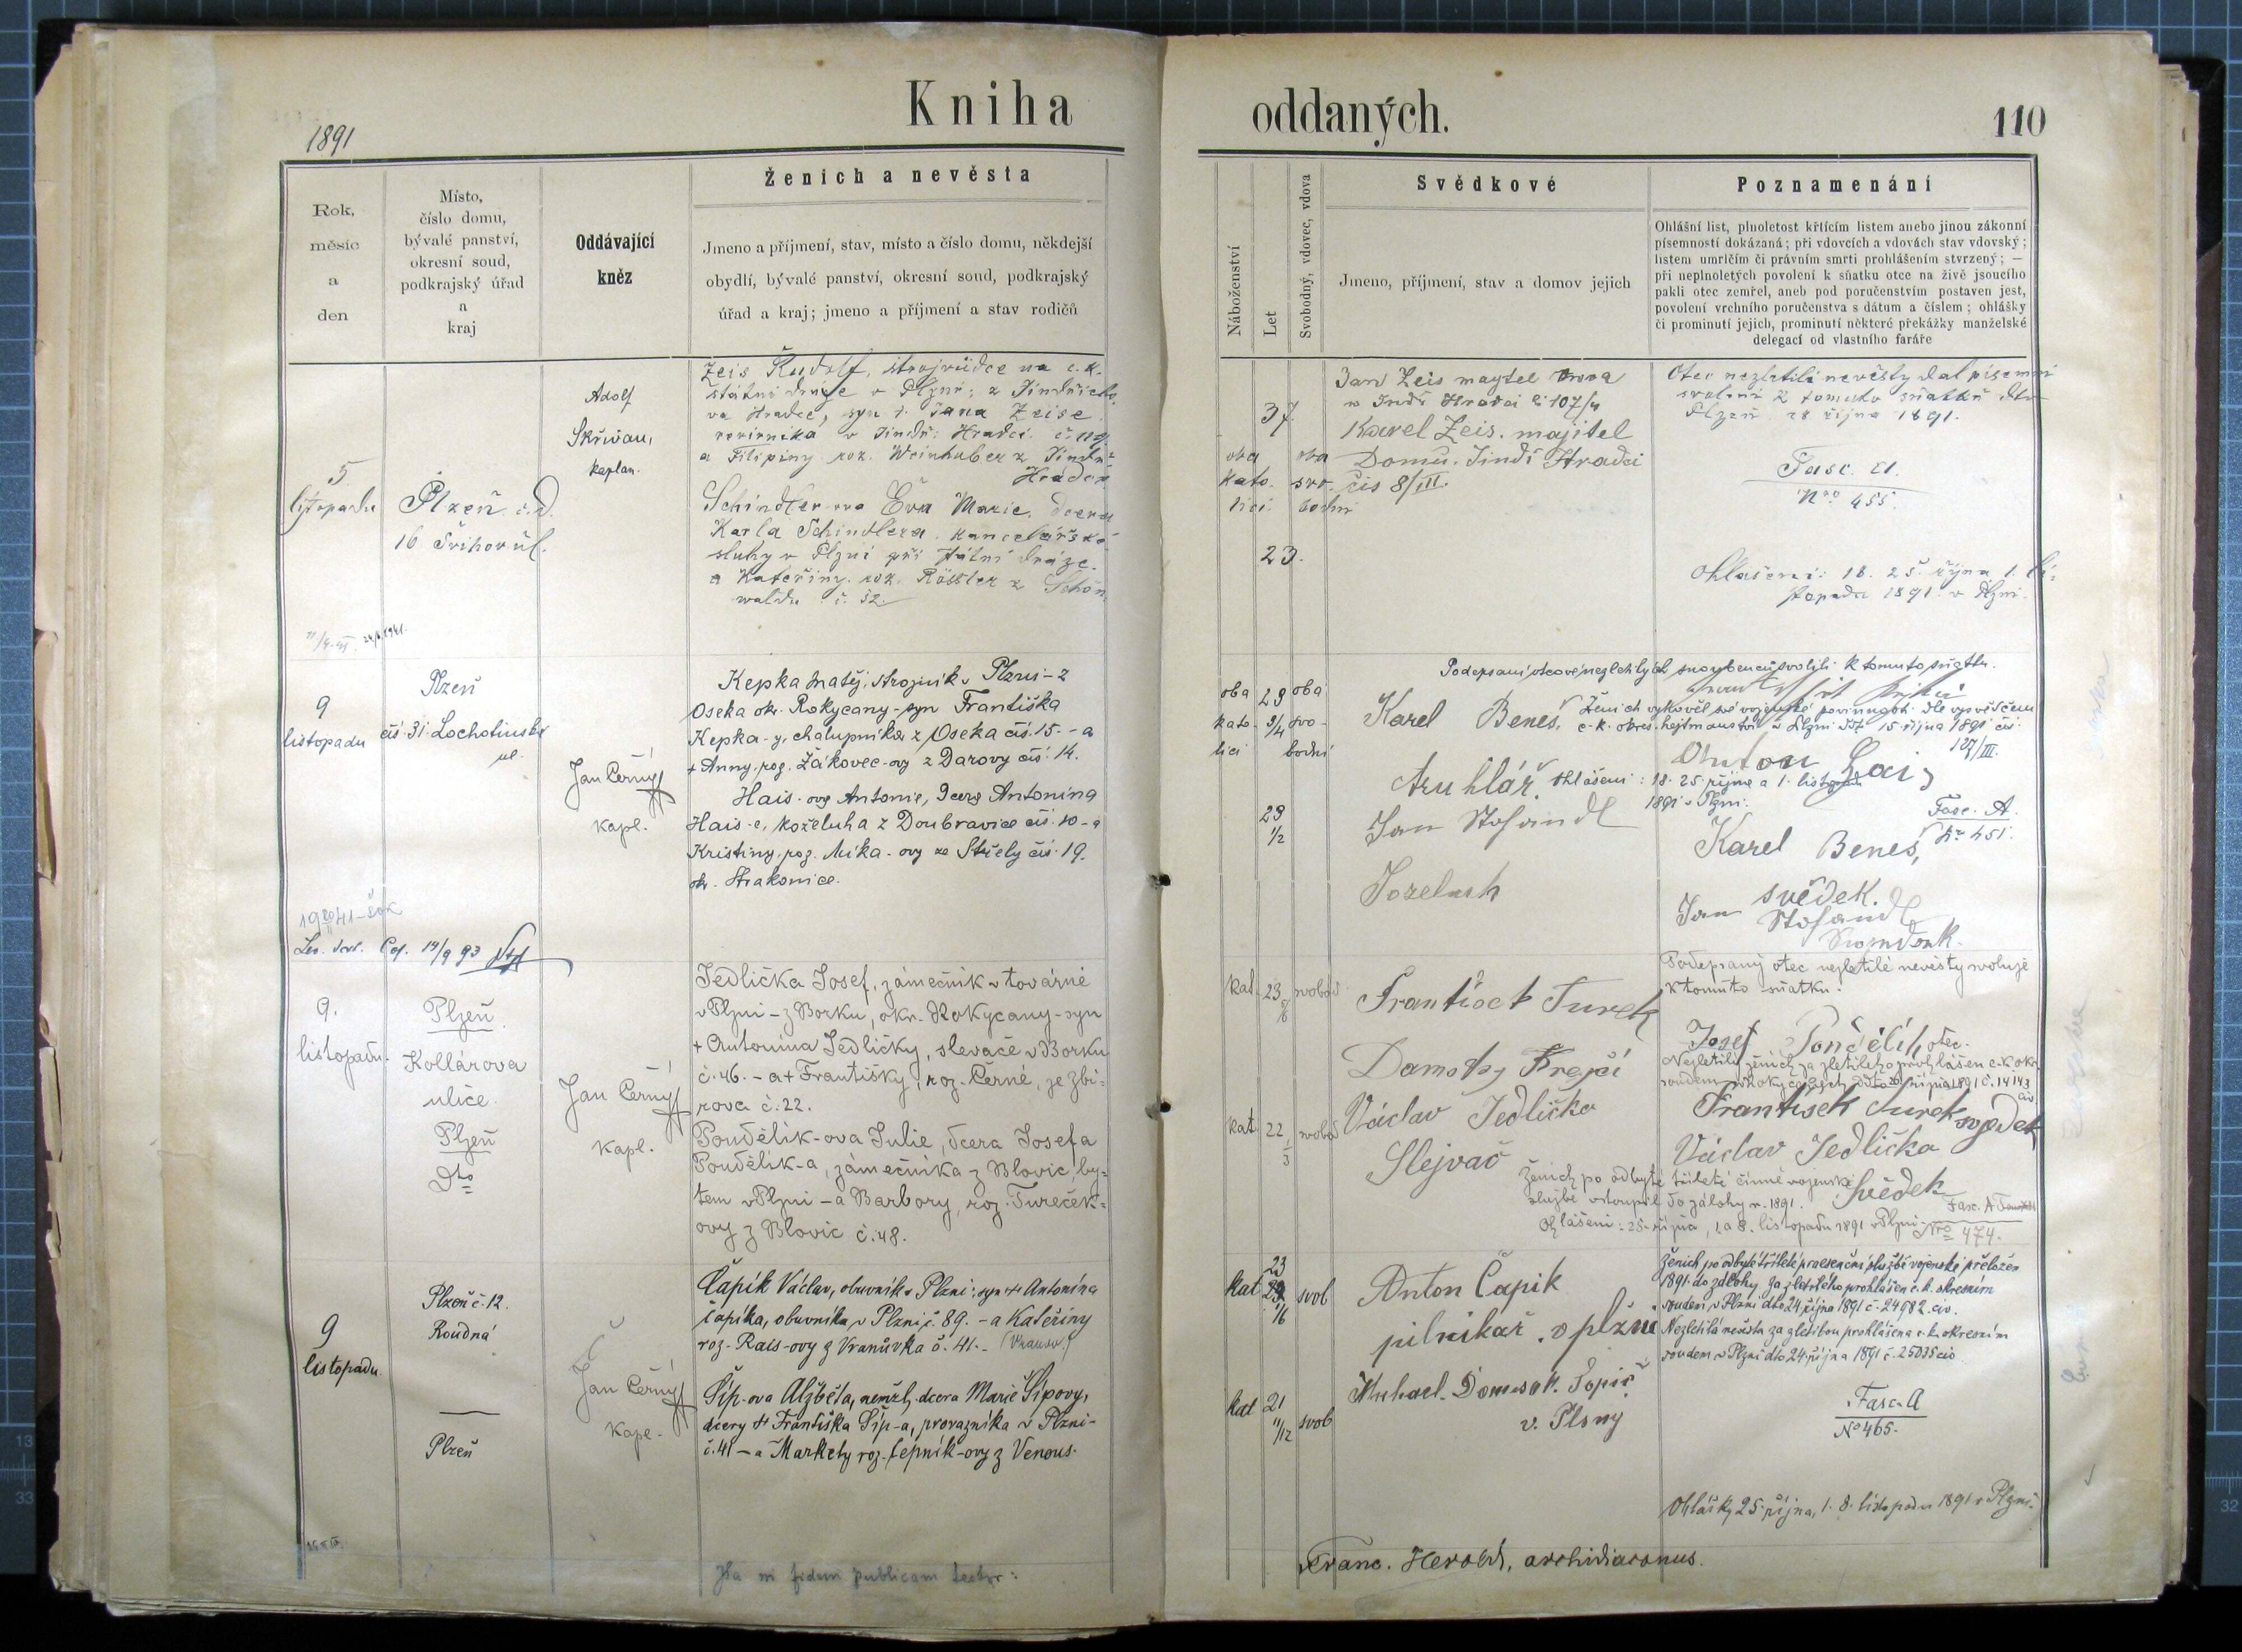 Kniha oddaných.
1891
110
Rok,
měsíc
a
den
Místo,
číslo domu,
bývalé panství,
okresní soud,
podkrajský úřad
a
kraj
Oddávající
kněz
Ženich a nevěsta
Jmeno a příjmení, stav, místo a číslo domu, někdejší
obydlí, bývalé panství, okresní soud, podkrajský
úřad a kraj; jmeno a příjmení a stav rodičů
Náboženství
Let
Svobodný, vdovec, vdova
Svědkové
Jmeno, příjmení, stav a domov jejich
Poznamenání
Ohlášní list, plnoletost křtícím listem anebo jinou zákonní
písemností dokázaná; při vdovcích a vdovách stav vdovský;
listem umrlčím či právním smrti prohlášením stvrzený; —
při neplnoletých povolení k sňatku otce na živě jsoucího
pakli otec zemřel, aneb pod poručenstvím postaven jest,
povolení vrchního poručenstva s dátum a číslem; ohlášky
či prominutí jejich, prominutí některé překážky manželské
delegací od vlastního faráře
5
listopadu
Plzeň č.d.
16
Adolf
Skřivan,
kaplan.
Zeis Rudolf, strojvůdce na c.k.
státní dráze v Plzni; z Jindřicho
va Hradce, syn Jana Zeise
v Jindř: Hradci
a Filipiny roz. Weinhuber z Jindř:
Hradce
Schindler-ova Eva Marie, dcera
Karla Schindlera, kancelářské
sluhy v Plzni při státní dráze
a Kateřiny roz. Rössler z Schön
waldu č. 52.
oba
kato-
líci
37
23.
oba
svo-
bodni
Jan Zeis
v Jindř Hradci č 107/4
Karel Zeis. majitel
Domu. Jindř Hradci
čis 8/III.
Otec nezletilé nevěsty dal písemní
svolení k tomuto sňatku dto
Plzeň 28 října 1891.
Fasc. A.
Nro 455.
Ohlášení: 18. 25. října 1. li-
stopadu 1891 v Plzni.
9
listopadu
Plzeň
čís. 31. Lochotínská
ul.
Jan Černý
kapl.
Kepka Matěj, strojník v Plzni - z
Oseka okr. Rokycany - syn Františka
Kepka-y, chalupníka z Oseka čís. 15. - a
+ Anny, roz. Žákovec-ovy z Darovy čís. 14.
Hais-ova Antonie, dcera Antonína
Hais-e, koželuha z Doubravice čís. 10 - a
Kristiny, roz. Mika-ovy ze Střely čís. 19.
okr. Strakonice.
oba
kato-
líci
29
3/4
29
1/2
oba
svo-
bodní
Podepsaní otcové nezletilých snoubenců svolili k tomuto sňatku.
Karel Beneš,
truhlář.
Ženich vykověl své vojenské povinnosti dle vysvěšcení
c.k. okres. hejtmanství v Plzni dto 15 října 1891 čís.
127/III.
Anton Hais
Ohlášení: 18. 25. října a 1. listopadu
1891 v Plzni.
Fasc. A.
No 451.
Jan
Karel Beneš,
svědek.
Jan
9.
listopadu.
Plzeň
Kollárova
ulice.
Plzeň
dto
Jan Černý
kapl.
Jedlička Josef, zámečník v továrně
v Plzni - z Borku, okr. Rokycany - syn
+ Antonína Jedličky, slevače v Borku
č. 46. - a + Františky, roz. Černé, ze Zbi-
rova č. 22.
Pondělík-ova Julie, dcera Josefa
Pondělík-a, zámečníka z Blovic, by-
tem v Plzni - a Barbory, roz. Tureček-
ovy z Blovic č. 48.
kat
23
svobod
kat
22
svobod
František Turek
Krejčí
Václav Jedlička
Slejvač
Podepsaný otec nezletilé nevěsty svoluje
k tomuto sňatku.
Josef Pondělík otec.
Nezletilý ženich za zletilého prohlášen c.k. okr.
soudem v Rokycanech dto října 1891 č. 14143
civ
František Turek svědek
Václav Jedlička
Svědek
Ženich po odbyté tříleté činné vojenské
službě vstoupil do zálohy r. 1891.
Ohlášení: 25. října, 1. a 8. listopadu 1891 v Plzni
Fasc. A
Nro 474.
9
listopadu.
Plzeň č. 12.
Roudná
Plzeň
Jan Černý
kapl.
Čapík Václav, obuvník v Plzni; syn + Antonína
Čapíka, obuvníka v Plzni č. 89. - a Kateřiny
roz. Rais-ovy z Vranůvka č. 41.-
Šíp-ova Alžběta, nemžl. dcera Marie Šípovy,
dcery + Františka Šíp-a, provazníka v Plzni -
č. 41 - a Markety roz. Čepník-ovy z Venous.
kat
23
svob
kat
21
11/12
svob
Anton Čapik
pilnikař. v plzni
Domesak. Topič
v. Plsny
Ženich po odbyté tříleté praesenční službě vojenské přeložen
1891 do zálohy za zletilého prohlášen c.k. okresním
soudem v Plzni dto 24 října 1891 č. 24982 civ.
Nezletilá nevěsta za zletilou prohlášena c.k. okresním
soudem v Plzni dto 24 října 1891 č. 25035 civ
Fasc. A
No 465.
Ohlášky 25. října, 1. 8. listopadu 1891 v Plzni.
Ita in fidem publicam testor:
Franc. Herold, archidiaconus.